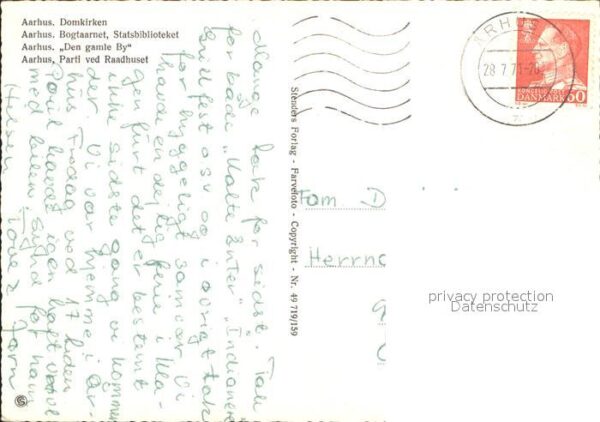 Aarhus. Domkirken
Aarhus. Bogtaarnet, Statsbiblioteket
Aarhus. „Den gamle By“
Aarhus, Parti ved Raadhuset
Mange tak for sidst. Tak
for både "Malte Enter", Indianer
Grillfest osv og i øvrigt tak
for hyggeligt samvær. Vi
havde en dejlig ferie i
gen fürt det er bestemt
ikke sidste gang vi kommer
der. Vi var hjemme i År-
hus Fredag ved 17 tiden
Poul havde igen haft uheld
med bilen
Hilsen Tove &
Jørn
Stenders Forlag - Farvefoto - Copyright - Nr. 49 719/159
ÅRHUS
28.7.71
KONGELIG POST
DANMARK 60
Fam. D
Herrn
privacy protection
Datenschutz
S